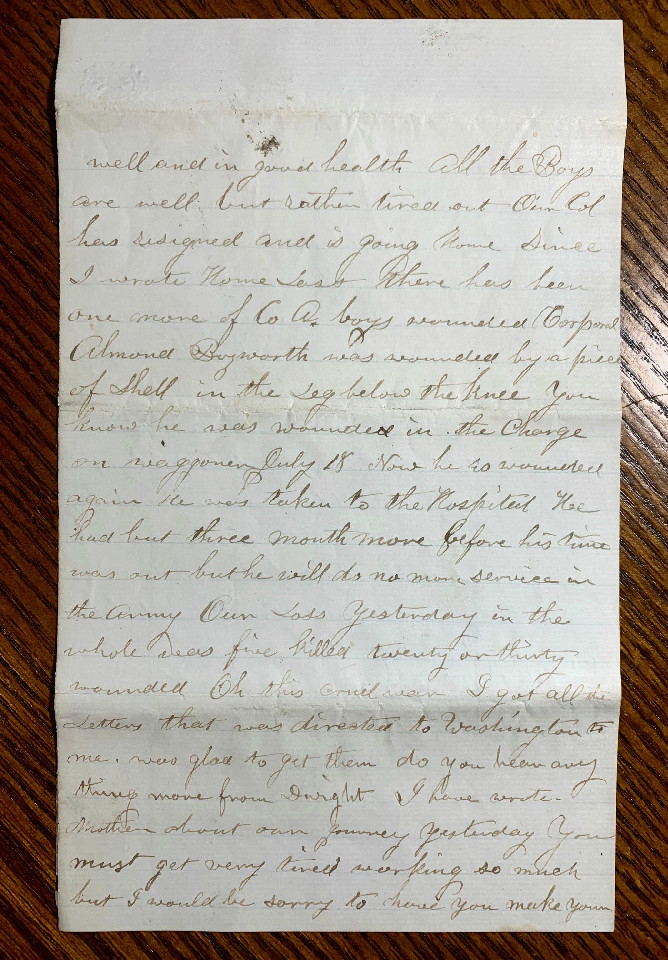 well and in good health All the Boys
are well. but rather tired out Our Col
has resigned and is going Home Since
I wrote Home Last there has been
one more of Co A. boys wounded Corporal
Almond Bozworth was wounded by a piece
of Shell in the Leg below the Knee You
know he was wounded in the Charge
on waggoner July 18 Now he is wounded
again He was taken to the Hospital He
had but three month more before his time
was out but he will do no more service in
the Army Our Loss Yesterday in the
whole was five killed twenty or thirty
wounded Oh this cruel war I got all the
Letters that was directed to Washington to
me. was glad to get them do you hear any
thing more from Dwight I have wrote
Mother about our journey yesterday You
must get very tired working so much
but I would be sorry to have you make your